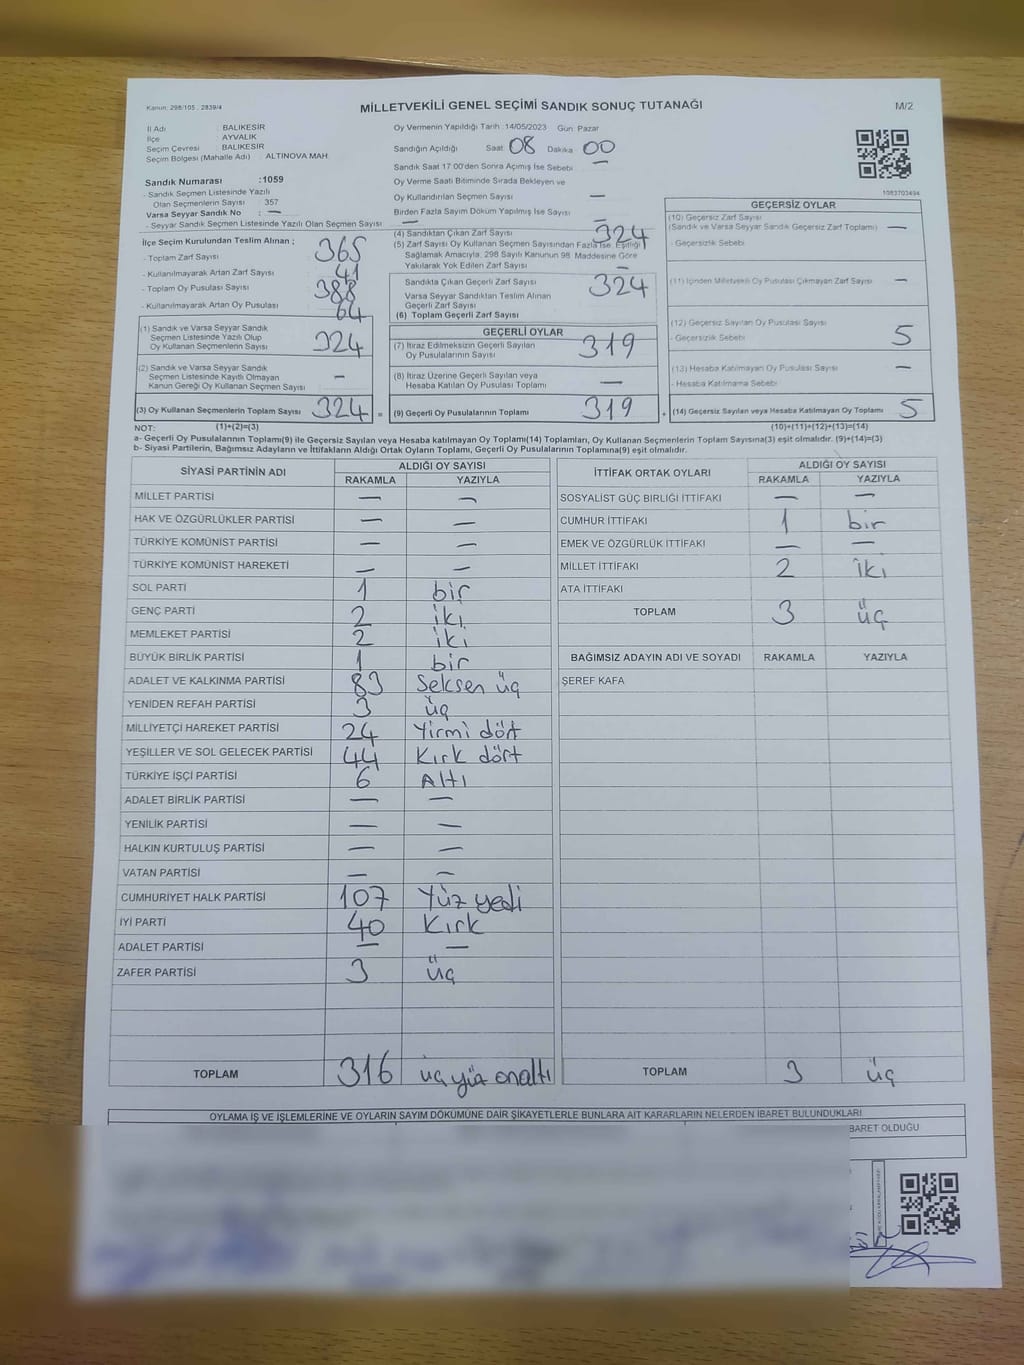 Kanun: 298/105 , 2839/4
MİLLETVEKİLİ GENEL SEÇİMİ SANDIK SONUÇ TUTANAĞI
M/2
İl Adı : BALIKESİR
İlçe : AYVALIK
Seçim Çevresi : BALIKESİR
Seçim Bölgesi (Mahalle Adı) : ALTINOVA MAH.
Oy Vermenin Yapıldığı Tarih :14/05/2023 Gün Pazar
Sandığın Açıldığı Saat 08 Dakika 00
Sandık Saat 17:00'den Sonra Açılmış İse Sebebi —
Oy Verme Saati Bitiminde Sırada Bekleyen ve
Oy Kullandırılan Seçmen Sayısı —
Birden Fazla Sayım Döküm Yapılmış İse Sayısı —
1083703494
Sandık Numarası :1059
- Sandık Seçmen Listesinde Yazılı
Olan Seçmenlerin Sayısı : 357
Varsa Seyyar Sandık No : —
- Seyyar Sandık Seçmen Listesinde Yazılı Olan Seçmen Sayısı —
İlçe Seçim Kurulundan Teslim Alınan ;
- Toplam Zarf Sayısı 365
- Kullanılmayarak Artan Zarf Sayısı 41
- Toplam Oy Pusulası Sayısı 388
- Kullanılmayarak Artan Oy Pusulası 64
(1) Sandık ve Varsa Seyyar Sandık
Seçmen Listesinde Yazılı Olup
Oy Kullanan Seçmenlerin Sayısı 324
(2) Sandık ve Varsa Seyyar Sandık
Seçmen Listesinde Kayıtlı Olmayan
Kanun Gereği Oy Kullanan Seçmen Sayısı —
(3) Oy Kullanan Seçmenlerin Toplam Sayısı 324 =
(4) Sandıktan Çıkan Zarf Sayısı 324
(5) Zarf Sayısı Oy Kullanan Seçmen Sayısından Fazla İse, Eşitliği
Sağlamak Amacıyla, 298 Sayılı Kanunun 98. Maddesine Göre
Yakılarak Yok Edilen Zarf Sayısı —
Sandıkta Çıkan Geçerli Zarf Sayısı 324
Varsa Seyyar Sandıktan Teslim Alınan
Geçerli Zarf Sayısı
(6) Toplam Geçerli Zarf Sayısı
GEÇERLİ OYLAR
(7) İtiraz Edilmeksizin Geçerli Sayılan
Oy Pusulalarının Sayısı 319
(8) İtiraz Üzerine Geçerli Sayılan veya
Hesaba Katılan Oy Pusulası Toplamı —
(9) Geçerli Oy Pusulalarının Toplamı 319 +
GEÇERSİZ OYLAR
(10) Geçersiz Zarf Sayısı
(Sandık ve Varsa Seyyar Sandık Geçersiz Zarf Toplamı) —
- Geçersizlik Sebebi
(11) İçinden Milletvekili Oy Pusulası Çıkmayan Zarf Sayısı —
(12) Geçersiz Sayılan Oy Pusulası Sayısı
- Geçersizlik Sebebi 5
(13) Hesaba Katılmayan Oy Pusulası Sayısı —
- Hesaba Katılmama Sebebi
(14) Geçersiz Sayılan veya Hesaba Katılmayan Oy Toplamı 5
NOT: (1)+(2)=(3) (10)+(11)+(12)+(13)=(14)
a- Geçerli Oy Pusulalarının Toplamı(9) ile Geçersiz Sayılan veya Hesaba katılmayan Oy Toplamı(14) Toplamları, Oy Kullanan Seçmenlerin Toplam Sayısına(3) eşit olmalıdır. (9)+(14)=(3)
b- Siyasi Partilerin, Bağımsız Adayların ve İttifakların Aldığı Ortak Oyların Toplamı, Geçerli Oy Pusulalarının Toplamına(9) eşit olmalıdır.
SİYASİ PARTİNİN ADI ALDIĞI OY SAYISI
RAKAMLA YAZIYLA
MİLLET PARTİSİ — —
HAK VE ÖZGÜRLÜKLER PARTİSİ — —
TÜRKİYE KOMÜNİST PARTİSİ — —
TÜRKİYE KOMÜNİST HAREKETİ — —
SOL PARTİ 1 bir
GENÇ PARTİ 2 iki
MEMLEKET PARTİSİ 2 iki
BÜYÜK BİRLİK PARTİSİ 1 bir
ADALET VE KALKINMA PARTİSİ 83 Seksen üç
YENİDEN REFAH PARTİSİ 3 üç
MİLLİYETÇİ HAREKET PARTİSİ 24 Yirmi dört
YEŞİLLER VE SOL GELECEK PARTİSİ 44 Kırk dört
TÜRKİYE İŞÇİ PARTİSİ 6 Altı
ADALET BİRLİK PARTİSİ — —
YENİLİK PARTİSİ — —
HALKIN KURTULUŞ PARTİSİ — —
VATAN PARTİSİ — —
CUMHURİYET HALK PARTİSİ 107 Yüz yedi
İYİ PARTİ 40 Kırk
ADALET PARTİSİ — —
ZAFER PARTİSİ 3 üç
TOPLAM 316 üç yüz onaltı
İTTİFAK ORTAK OYLARI ALDIĞI OY SAYISI
RAKAMLA YAZIYLA
SOSYALİST GÜÇ BİRLİĞİ İTTİFAKI — —
CUMHUR İTTİFAKI 1 bir
EMEK VE ÖZGÜRLÜK İTTİFAKI — —
MİLLET İTTİFAKI 2 iki
ATA İTTİFAKI
TOPLAM 3 üç
BAĞIMSIZ ADAYIN ADI VE SOYADI RAKAMLA YAZIYLA
ŞEREF KAFA
TOPLAM 3 üç
OYLAMA İŞ VE İŞLEMLERİNE VE OYLARIN SAYIM DÖKÜMÜNE DAİR ŞİKAYETLERLE BUNLARA AİT KARARLARIN NELERDEN İBARET BULUNDUKLARI
BARET OLDUĞU